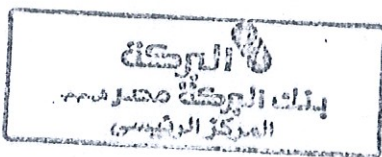 البركة
بنك البركة مصر ش.م.م
المركز الرئيسى